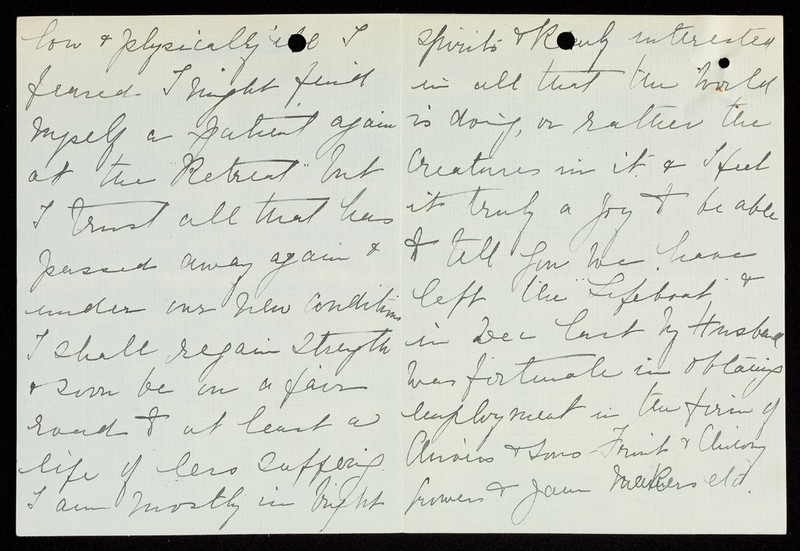 low & physically ill I
feared I might find
myself a patient again
at the "Retreat" but
I trust all that has
passed away again &
under our new conditions
I shall regain strength
& soon be on a fair
road to at least a
life of less suffering.
I am mostly in bright
spirits & keenly interested
in all that the World
is doing, or rather the
Creatures in it. & I feel
it truly a joy to be able
to tell you we have
left the "Lifeboat" &
in Dec last my Husband
was fortunate in obtaing
employment in the firm of
Chivers & Sons Fruit &
Growers & Jam Makers etc.